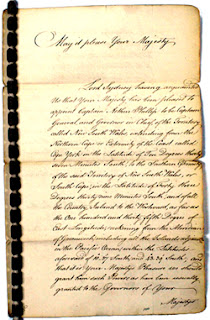 May it please Your Majesty,
Lord Sydney having acquainted
Us that Your Majesty has been pleased to
appoint Captain Arthur Phillip to be Captain
General and Governor in Chief of the Territory
called New South Wales, extending from the
Northern Cape or Extremity of the Coast called
Cape York in the Latitude of Ten Degrees thirty
seven Minutes South, to the Southern Extremity
of the said Territory of New South Wales, or
South Cape, in the Latitude of Forty three
Degrees thirty nine Minutes South, and of all
the Country Inland to the Westward as far as
the One hundred and thirty fifth Degree of
East Longitude, reckoning from the Meridian
of Greenwich, including all the Islands adjacent
in the Pacific Ocean, within the Latitudes
aforesaid of 10.37 South, and 43.39 South, and
that it is Your Majesty's Pleasure we should
grant him such Powers as have been usually
granted to the Governors of Your
Majesty's